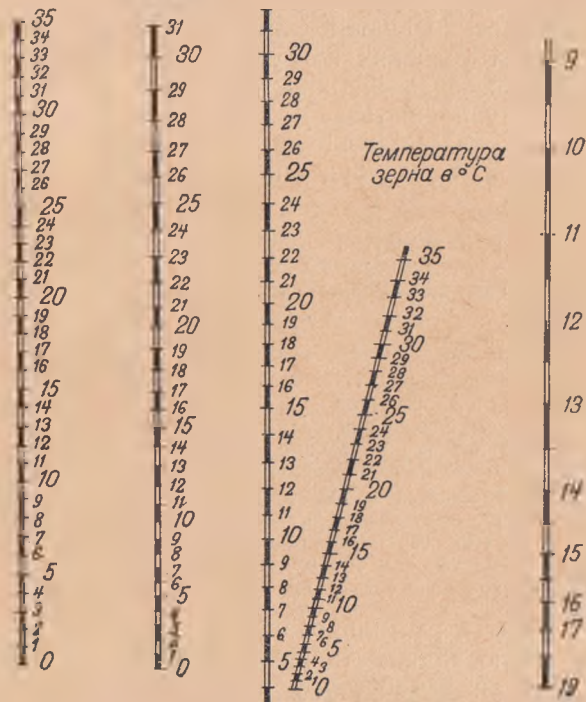 35
34
33
32
31
30
29
28
27
26
25
24
23
22
21
20
19
18
17
16
15
14
13
12
11
10
9
8
7
5
4
2
1
0
31
30
29
28
27
26
25
24
23
22
21
20
19
18
17
16
15
14
13
12
11
10
9
8
7
6
5
0
30
29
28
27
26
25
24
23
22
21
20
19
18
17
16
15
14
13
12
11
10
9
8
7
6
5
Температура
зерна в °C
35
34
33
32
31
30
29
28
27
26
25
24
23
22
21
20
19
18
17
16
15
14
13
12
11
10
9
8
7
6
5
4
3
2
1
0
9
10
11
12
13
14
15
16
17
19